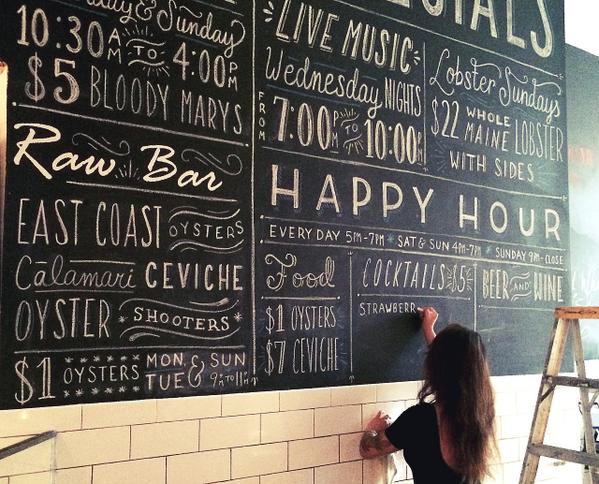 & Sunday
10:30 AM TO 4:00 PM
$5 BLOODY MARYS
Raw Bar
EAST COAST OYSTERS
Calamari CEVICHE
OYSTER SHOOTERS
$1 OYSTERS MON, TUE & SUN 9PM TO 11PM
LIVE MUSIC
Wednesday NIGHTS
FROM 7:00PM TO 10:00PM
Lobster Sundays
$22 WHOLE MAINE LOBSTER
WITH SIDES
HAPPY HOUR
EVERY DAY 5PM-7PM * SAT & SUN 4PM-7PM * SUNDAY 9PM-CLOSE
Food
$1 OYSTERS
$7 CEVICHE
COCKTAILS $5
STRAWBERR
BEER AND WINE